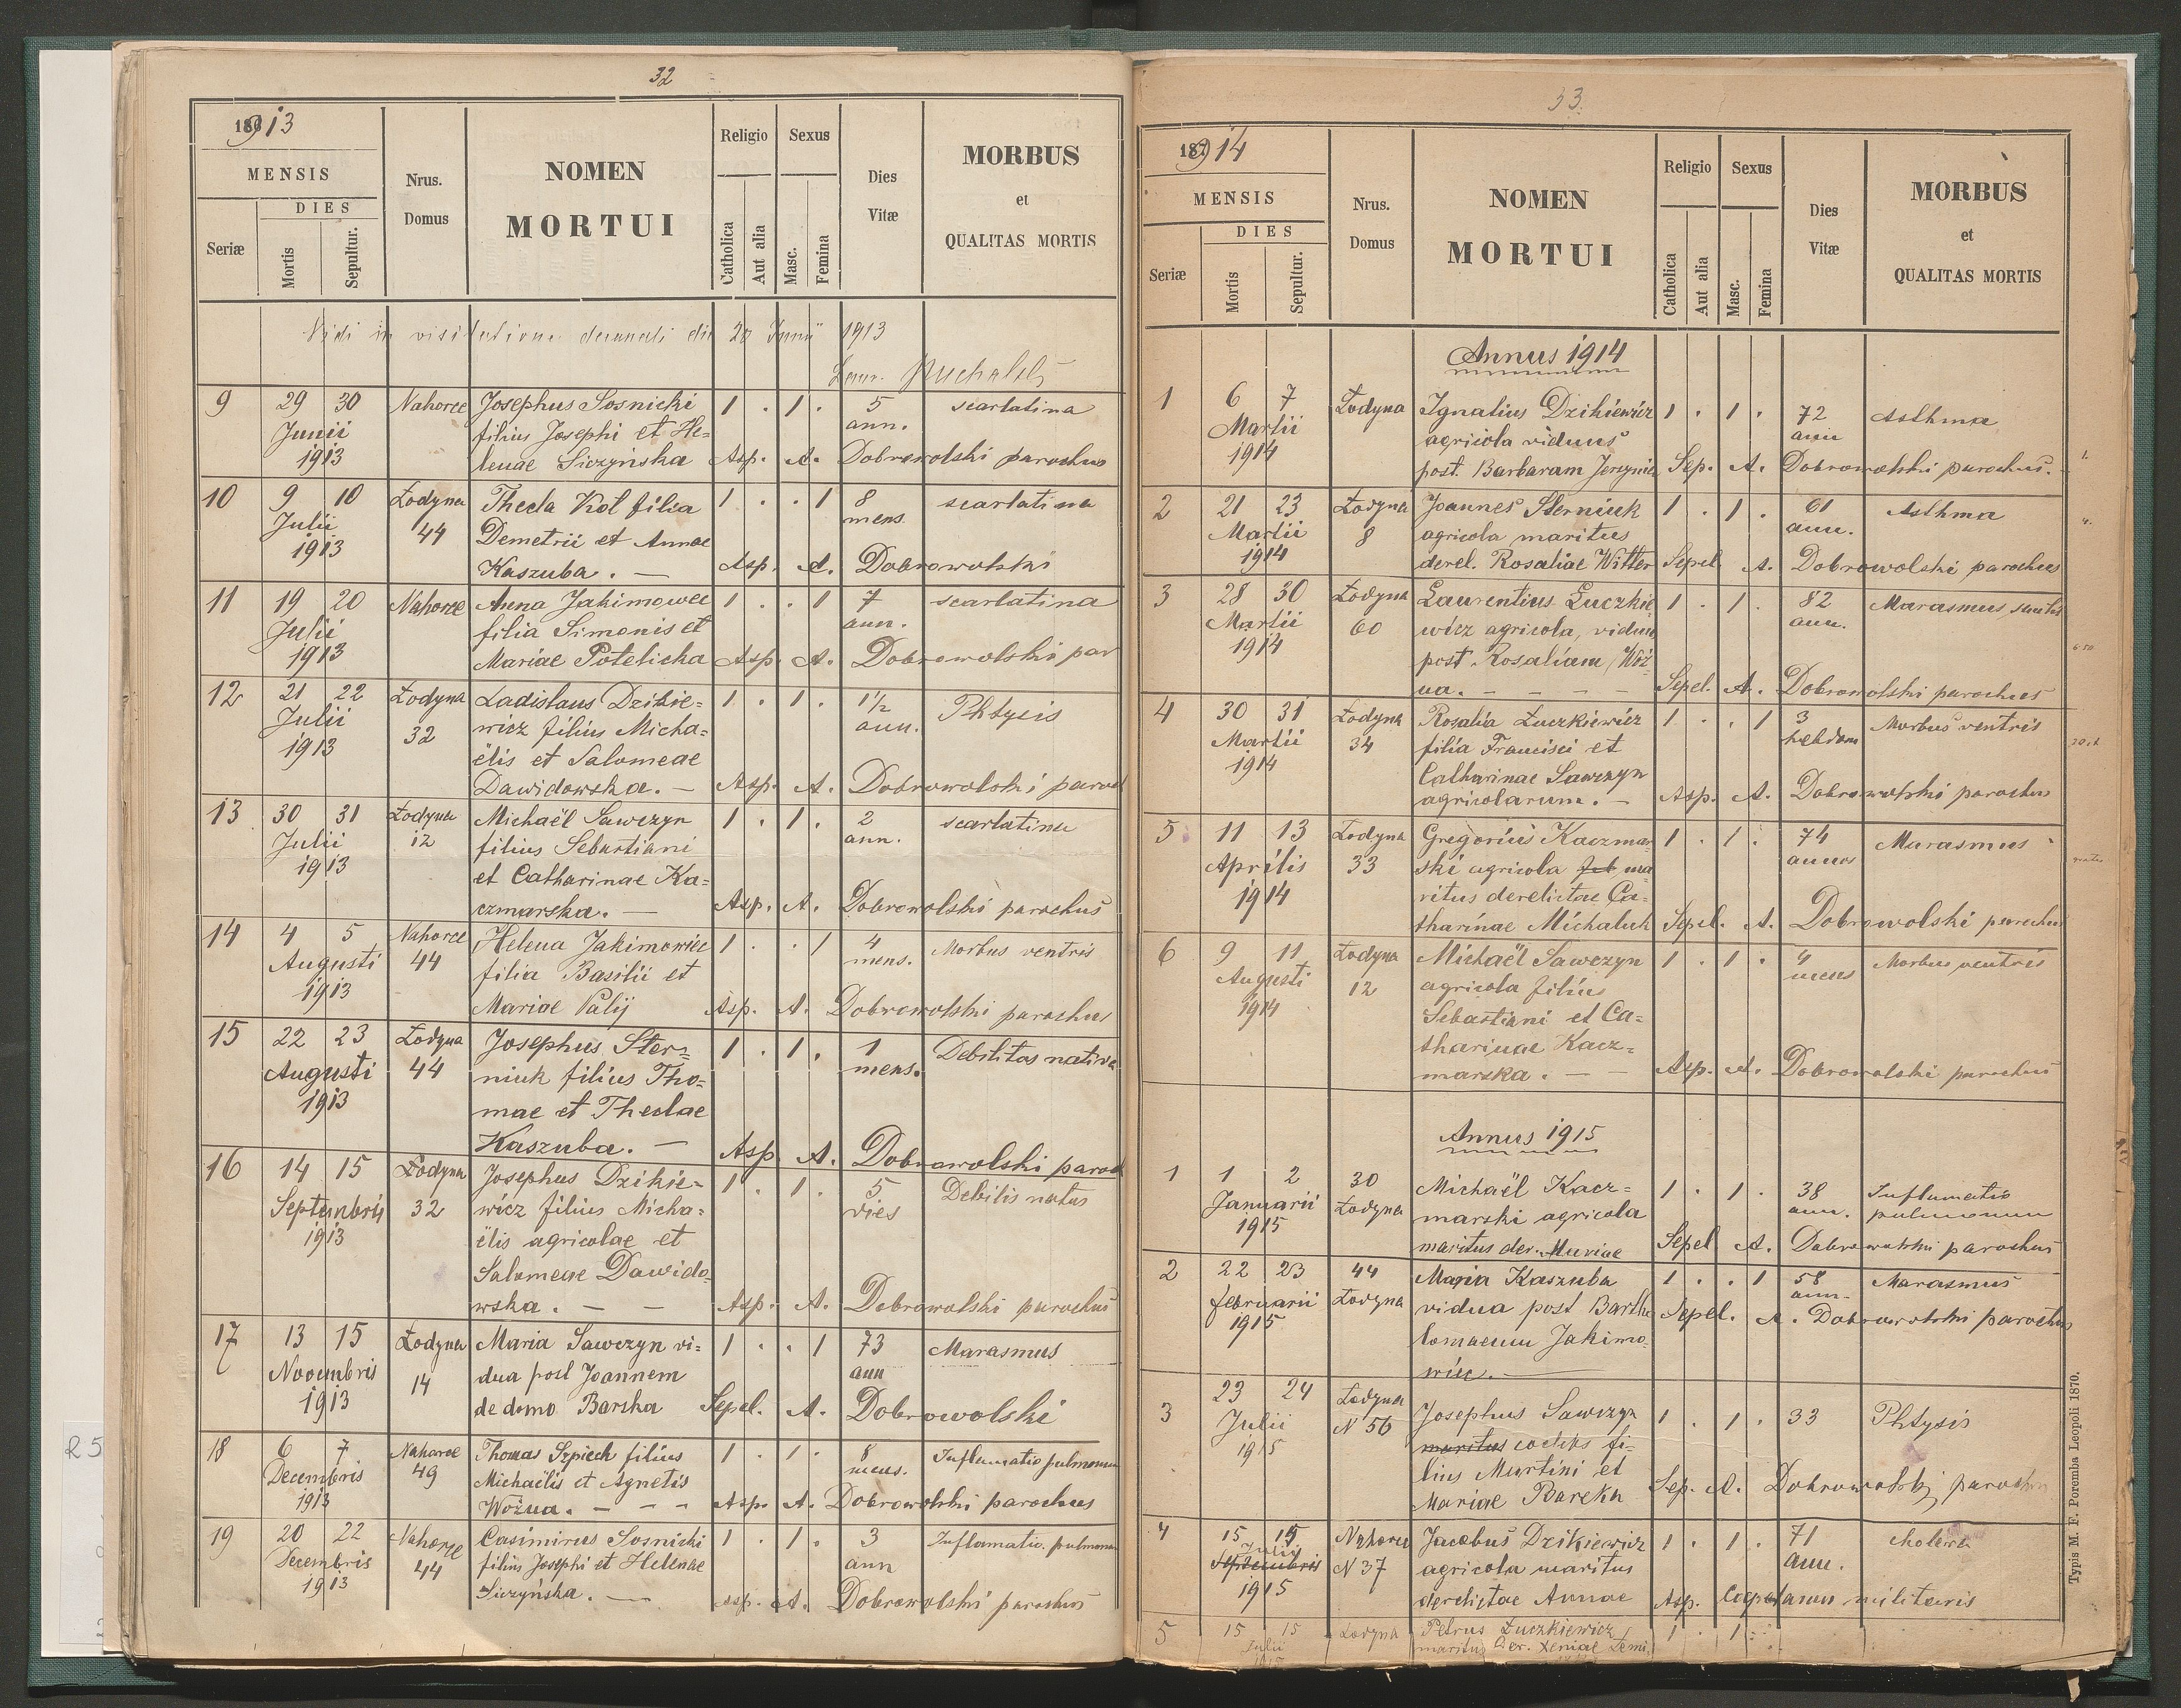 32
186 913
MENSIS
DIES
Seriæ
Mortis
Sepultur.
Nrus.
Domus
NOMEN
MORTUI
Religio
Catholica
Aut alia
Sexus
Masc.
Femina
Dies
Vitæ
MORBUS
et
QUALITAS MORTIS
Vidi in visitatione decanali die 20 Junii 1913
9 29 30 Nahorce Josephus Sosnicki 1 . 1 . 5 scarlatina
Junii filius Josephi et He= ann.
1913 lenae Siczyńska Asp. A. Dobrowolski parochus
10 9 10 Łodyna Thecla Kot filia 1 . . 1 8 scarlatina
Julii 44 Demetrii et Annae mens.
1913 Kaszuba. — Asp. A. Dobrowolski
11 19 20 Nahorce Anna Jakimowec 1 . . 1 7 scarlatina
Julii filia Simonis et ann.
1913 Mariae Potelicka Asp. A. Dobrowolski par
12 21 22 Łodyna Ladislaus Dzikie= 1 . 1 . 1½ Phtysis
Julii 32 wicz filius Micha= ann.
1913 ëlis et Salomeae
Dawidowska. — Asp. A. Dobrowolski paroch
13 30 31 Łodyna Michaël Sawczyn 1 . 1 . 2 scarlatina
Julii 12 filius Sebastiani ann.
1913 et Catharinae Ka=
czmarska. — Asp. A. Dobrowolski parochus
14 4 5 Nahorce Helena Jakimowiec 1 . . 1 4 Morbus ventris
Augusti 44 filia Basilii et mens.
1913 Mariae Palij Asp. A. Dobrowolski parochus
15 22 23 Łodyna Josephus Ster= 1 . 1 . 1 Debilitas nativa
Augusti 44 niuk filius Tho= mens.
1913 mae et Theclae
Kaszuba. — Asp A. Dobrowolski paroch
16 14 15 Łodyna Josephus Dzikie= 1 . 1 . 5 Debilis natus
Septembris 32 wicz filius Micha= dies
1913 ëlis agricolae et
Salomeae Dawido=
wska. — — Asp. A. Dobrowolski parochus
17 13 15 Łodyna Maria Sawczyn vi= 1 . . 1 73 Marasmus
Novembris 14 dua post Joannem ann
1913 de domo Barska Sepel. A. Dobrowolski
18 6 7 Nahorce Thomas Szpiech filius 1 . 1 . 8 Inflamatio pulmonum
Decembris 49 Michaëlis et Agnetis mens.
1913 Woźna. — — — Asp. A. Dobrowolski parochus
19 20 22 Nahorce Casimirus Sosnicki 1 . 1 . 3 Inflamatio pulmonum
Decembris 44 filius Josephi et Helenae ann
1913 Siczyńska. — Asp. A. Dobrowolski parochus
33.
187 914
MENSIS
DIES
Seriæ
Mortis
Sepultur.
Nrus.
Domus
NOMEN
MORTUI
Religio
Catholica
Aut alia
Sexus
Masc.
Femina
Dies
Vitæ
MORBUS
et
QUALITAS MORTIS
Annus 1914
1 6 7 Łodyna Ignatius Dzikiewicz 1 . 1 . 72 Asthma
Martii agricola viduus ann
1914 post. Barbaram Sep. A. Dobrowolski parochus.
2 21 23 Łodyna Joannes Sterniuk 1 . 1 . 61 Asthma
Martii 8 agricola maritus ann.
1914 derel. Rosaliae Witter Sepel. A. Dobrowolski parochus
3 28 30 Łodyna Laurentius Łuczkie 1 . 1 . 82 Marasmus senilis
Martii 60 wicz agricola, viduus ann.
1914 post Rosaliam Woź
na. — — — — Sepel. A. Dobrowolski parochus
4 30 31 Łodyna Rosalia Łuczkiewicz 1 . . 1 3 Morbus ventris
Martii 34 filia Francisci et hebdom
1914 Catharinae Sawczyn
agricolarum. — Asp. A. Dobrowolski parochus
5 11 13 Łodyna Gregorius Kaczmar 1 . 1 . 74 Marasmus
Aprilis 33 ski agricola ma annos
1914 ritus derelictae Ca=
tharinae Michaluk Sepel. A. Dobrowolski parochus
6 9 11 Łodyna Michaël Sawczyn 1 . 1 . 4 Morbus ventris
Augusti 12 agricola filius mens
1914 Sebastiani et Ca=
tharinae Kacz=
marska. — — Asp. A. Dobrowolski parochus
Annus 1915
1 1 2 30 Michaël Kacz= 1 . 1 . 38 Inflamatio
Januarii Łodyna marski agricola ann. pulmonum
1915 maritus der. Mariae Sepel A. Dobrowolski parochus
2 22 23 44 Maria Kaszuba 1 . . 1 58 Marasmus
februarii Łodyna vidua post Bartho ann.
1915 lomaeum Jakimo Sepel. A. Dobrowolski parochus
wiec. —
3 23 24 Łodyna Josephus Sawczyn 1 . 1 . 33 Phtysis
Julii N 56 maritus coelebs fi=
1915 lius Martini et
Mariae Barcka Sep. A. Dobrowolski parochus
4 15 15 Nahorce Jacobus Dzikiewicz 1 . 1 . 71 cholera
Julii Septembris N 37 agricola maritus ann.
1915 derelictae Annae Asp. Capelanus militaris
5 15 15 Łodyna Petrus Łuczkiewicz 1 . 1 .
Julii maritus der. Xeniae
1915
Typis M. F. Poremba Leopoli 1870.
R 5